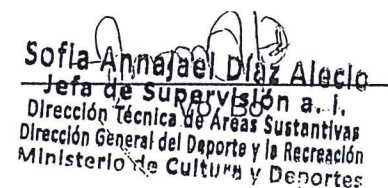 Sofía Annajael Díaz Alecio
Jefa de Supervisión a. i.
Vo. Bo.
Dirección Técnica de Áreas Sustantivas
Dirección General del Deporte y la Recreación
Ministerio de Cultura y Deportes